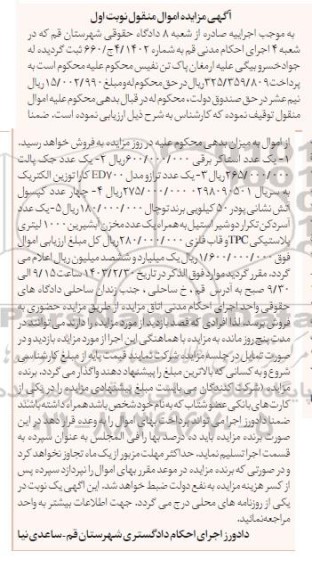 آگهی مزایده اموال منقول نوبت اول
به موجب اجراییه صادره از شعبه ۸ دادگاه حقوقی شهرستان قم که در
شعبه ۴ اجرای احکام مدنی قم به شماره ۱۴۰۲/ج۴/۶۶۰ ثبت گردیده له
جواد خسرو بیگی علیه ارمغان پاک تن نفیس محکوم علیه محکوم است به
پرداخت ۳۲۵/۳۵۹/۸۰۹ ریال در حق محکوم له و مبلغ ۱۵/۰۰۲/۹۹۰ ریال
نیم عشر در حق صندوق دولت، محکوم له در قبال بدهی محکوم علیه اموال
منقول توقیف نموده که کارشناس به شرح ذیل ارزیابی نموده است. ضمنا
از اموال به میزان بدهی محکوم علیه در روز مزایده به فروش خواهد رسید.
۱- یک عدد استاکر برقی ۶۰۰/۰۰۰/۰۰۰ ریال ۲- یک عدد جک پالت
۲۶۵/۰۰۰/۰۰۰ ریال ۳- یک عدد ترازو مدل ED۷۰۰ کارا توزین الکتریک
به سریال ۰۲۹۸۰۹۰۵۰۱ ۲۷۵/۰۰۰/۰۰۰ ریال ۴- چهار عدد کپسول
آتش نشانی پودر ۵۰ کیلویی برند توچال ۱۸۰/۰۰۰/۰۰۰ ریال ۵- یک عدد
آسردکن تکرار دو شیر استیل به همراه یک عدد مخزن آبشیرین ۱۰۰۰ لیتری
پلاستیکی TPC و قاب فلزی ۲۸۰/۰۰۰/۰۰۰ ریال کل مبلغ ارزیابی اموال
فوق ۱/۶۰۰/۰۰۰/۰۰۰ ریال یک میلیارد و ششصد میلیون ریال اعلام می
گردد، مقرر گردید موارد فوق الذکر در تاریخ ۱۴۰۳/۲/۳۰ ساعت ۹/۱۵ الی
۹/۳۰ صبح به آدرس قم، خ ساحلی، جنب زندان ساحلی دادگاه های
حقوقی واحد اجرای احکام مدنی اتاق مزایده، از طریق مزایده حضوری به
فروش برسد. لذا افرادی که قصد بازدید از مورد مزایده را دارند می توانند در
مدت پنج روز مانده به مزایده با هماهنگی این اجرا از مورد مزایده بازدید و در
صورت تمایل در جلسه مزایده شرکت نمایند قیمت پایه از مبلغ کارشناسی
شروع و به کسانی که بالاترین مبلغ را پیشنهاد دهند واگذار می گردد، برنده
مزایده (شرکت کنندگان می بایست مبلغ پیشنهادی مزایده را در یکی از
کارت های بانکی عضو شتاب که به نام خود شخص باشد همراه داشته باشند
ضمنا دادورز اجرا می تواند پرداخت بهای اموال را به وعده قرار دهد در این
صورت برنده مزایده باید ده درصد بها را فی المجلس به عنوان سپرده به
قسمت اجرا تسلیم نماید، حداکثر مهلت مزبور از یک ماه تجاوز نخواهد کرد
و در صورتی که برنده مزایده در موعد مقرر بهای اموال را نپردازد سپرده پس
از کسر هزینه مزایده به نفع دولت ضبط خواهد شد. این آگهی یک نوبت در
یکی از روزنامه های محلی درج می گردد. جهت اطلاعات بیشتر به واحد
مراجعه نمائید.
دادورز اجرای احکام دادگستری شهرستان قم - ساعدی نیا